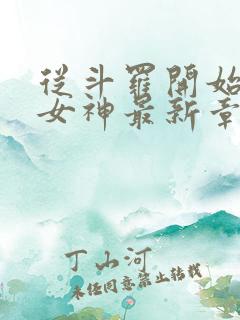 從斗羅開始
女神最新章
丁山河
未經同意禁止轉載